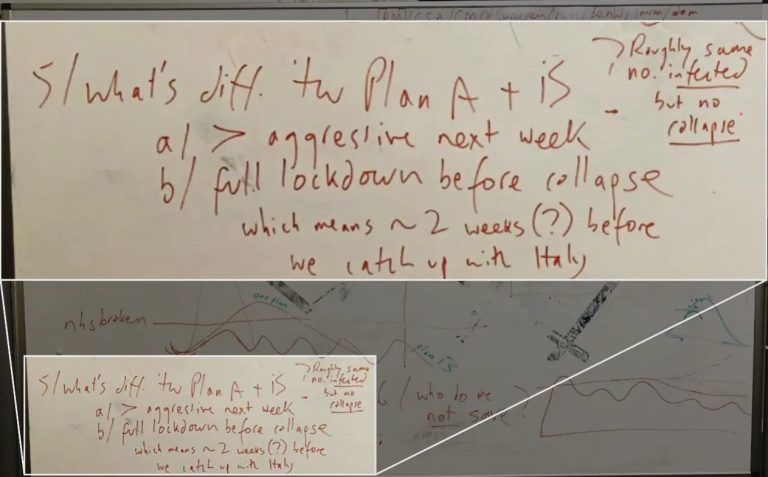 5/ what's diff. tw Plan A + iS
→ Roughly same
no. infected
but no
collapse.
a/ > aggressive next week
b/ full lockdown before collapse
which means ~ 2 weeks (?) before
we catch up with Italy
our plan
nhs broken
plan iS
5/ what's diff. tw Plan A + iS
→ Roughly same
no. infected
but no
collapse
a/ > aggressive next week
b/ full lockdown before collapse
which means ~ 2 weeks (?) before
we catch up with Italy
6/ who do we
not save?